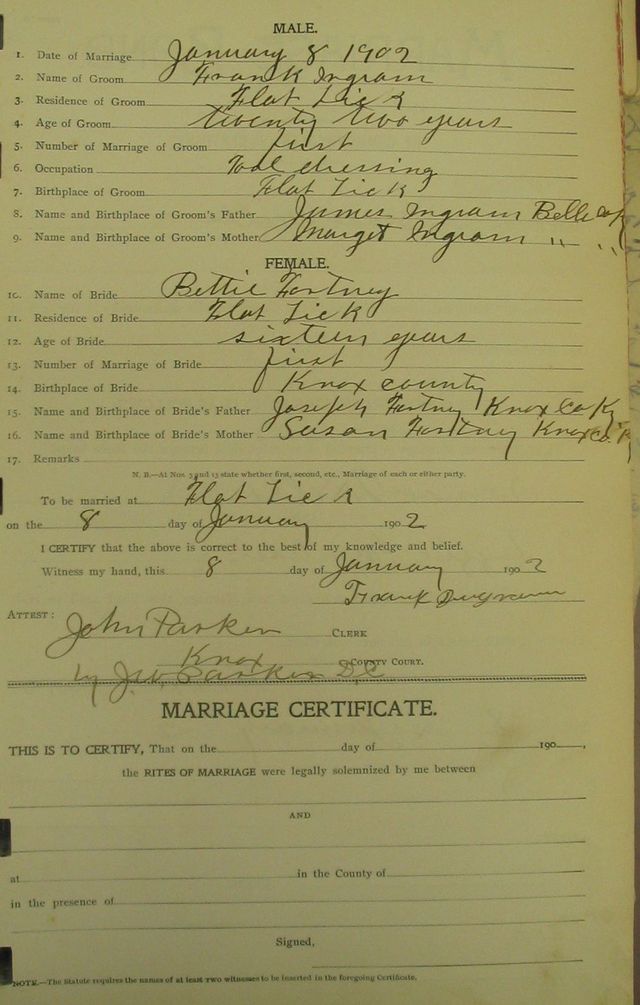 MALE.
1. Date of Marriage January 8 1902
2. Name of Groom Frank Ingram
3. Residence of Groom Flat Lick
4. Age of Groom twenty two years
5. Number of Marriage of Groom first
6. Occupation Tool dressing
7. Birthplace of Groom Flat Lick
8. Name and Birthplace of Groom's Father James Ingram Bell co Ky
9. Name and Birthplace of Groom's Mother Marget Ingram " "
FEMALE.
10. Name of Bride Bettie Fortney
11. Residence of Bride Flat Lick
12. Age of Bride sixteen years
13. Number of Marriage of Bride first
14. Birthplace of Bride Knox county
15. Name and Birthplace of Bride's Father Joseph Fortney Knox Co Ky
16. Name and Birthplace of Bride's Mother Susan Fortney Knox co. K
17. Remarks
N. B.—At Nos. 5 and 13 state whether first, second, etc., Marriage of each or either party.
To be married at Flat Lick
on the 8 day of January 1902
I CERTIFY that the above is correct to the best of my knowledge and belief.
Witness my hand, this 8 day of January 1902
Frank Ingram
ATTEST:
John Parker CLERK
Knox COUNTY COURT.
by J.W. Parker D.C
MARRIAGE CERTIFICATE.
THIS IS TO CERTIFY, That on the day of 190 ,
the RITES OF MARRIAGE were legally solemnized by me between
AND
at in the County of
in the presence of
Signed,
NOTE.—The Statute requires the names of at least two witnesses to be inserted in the foregoing Certificate.